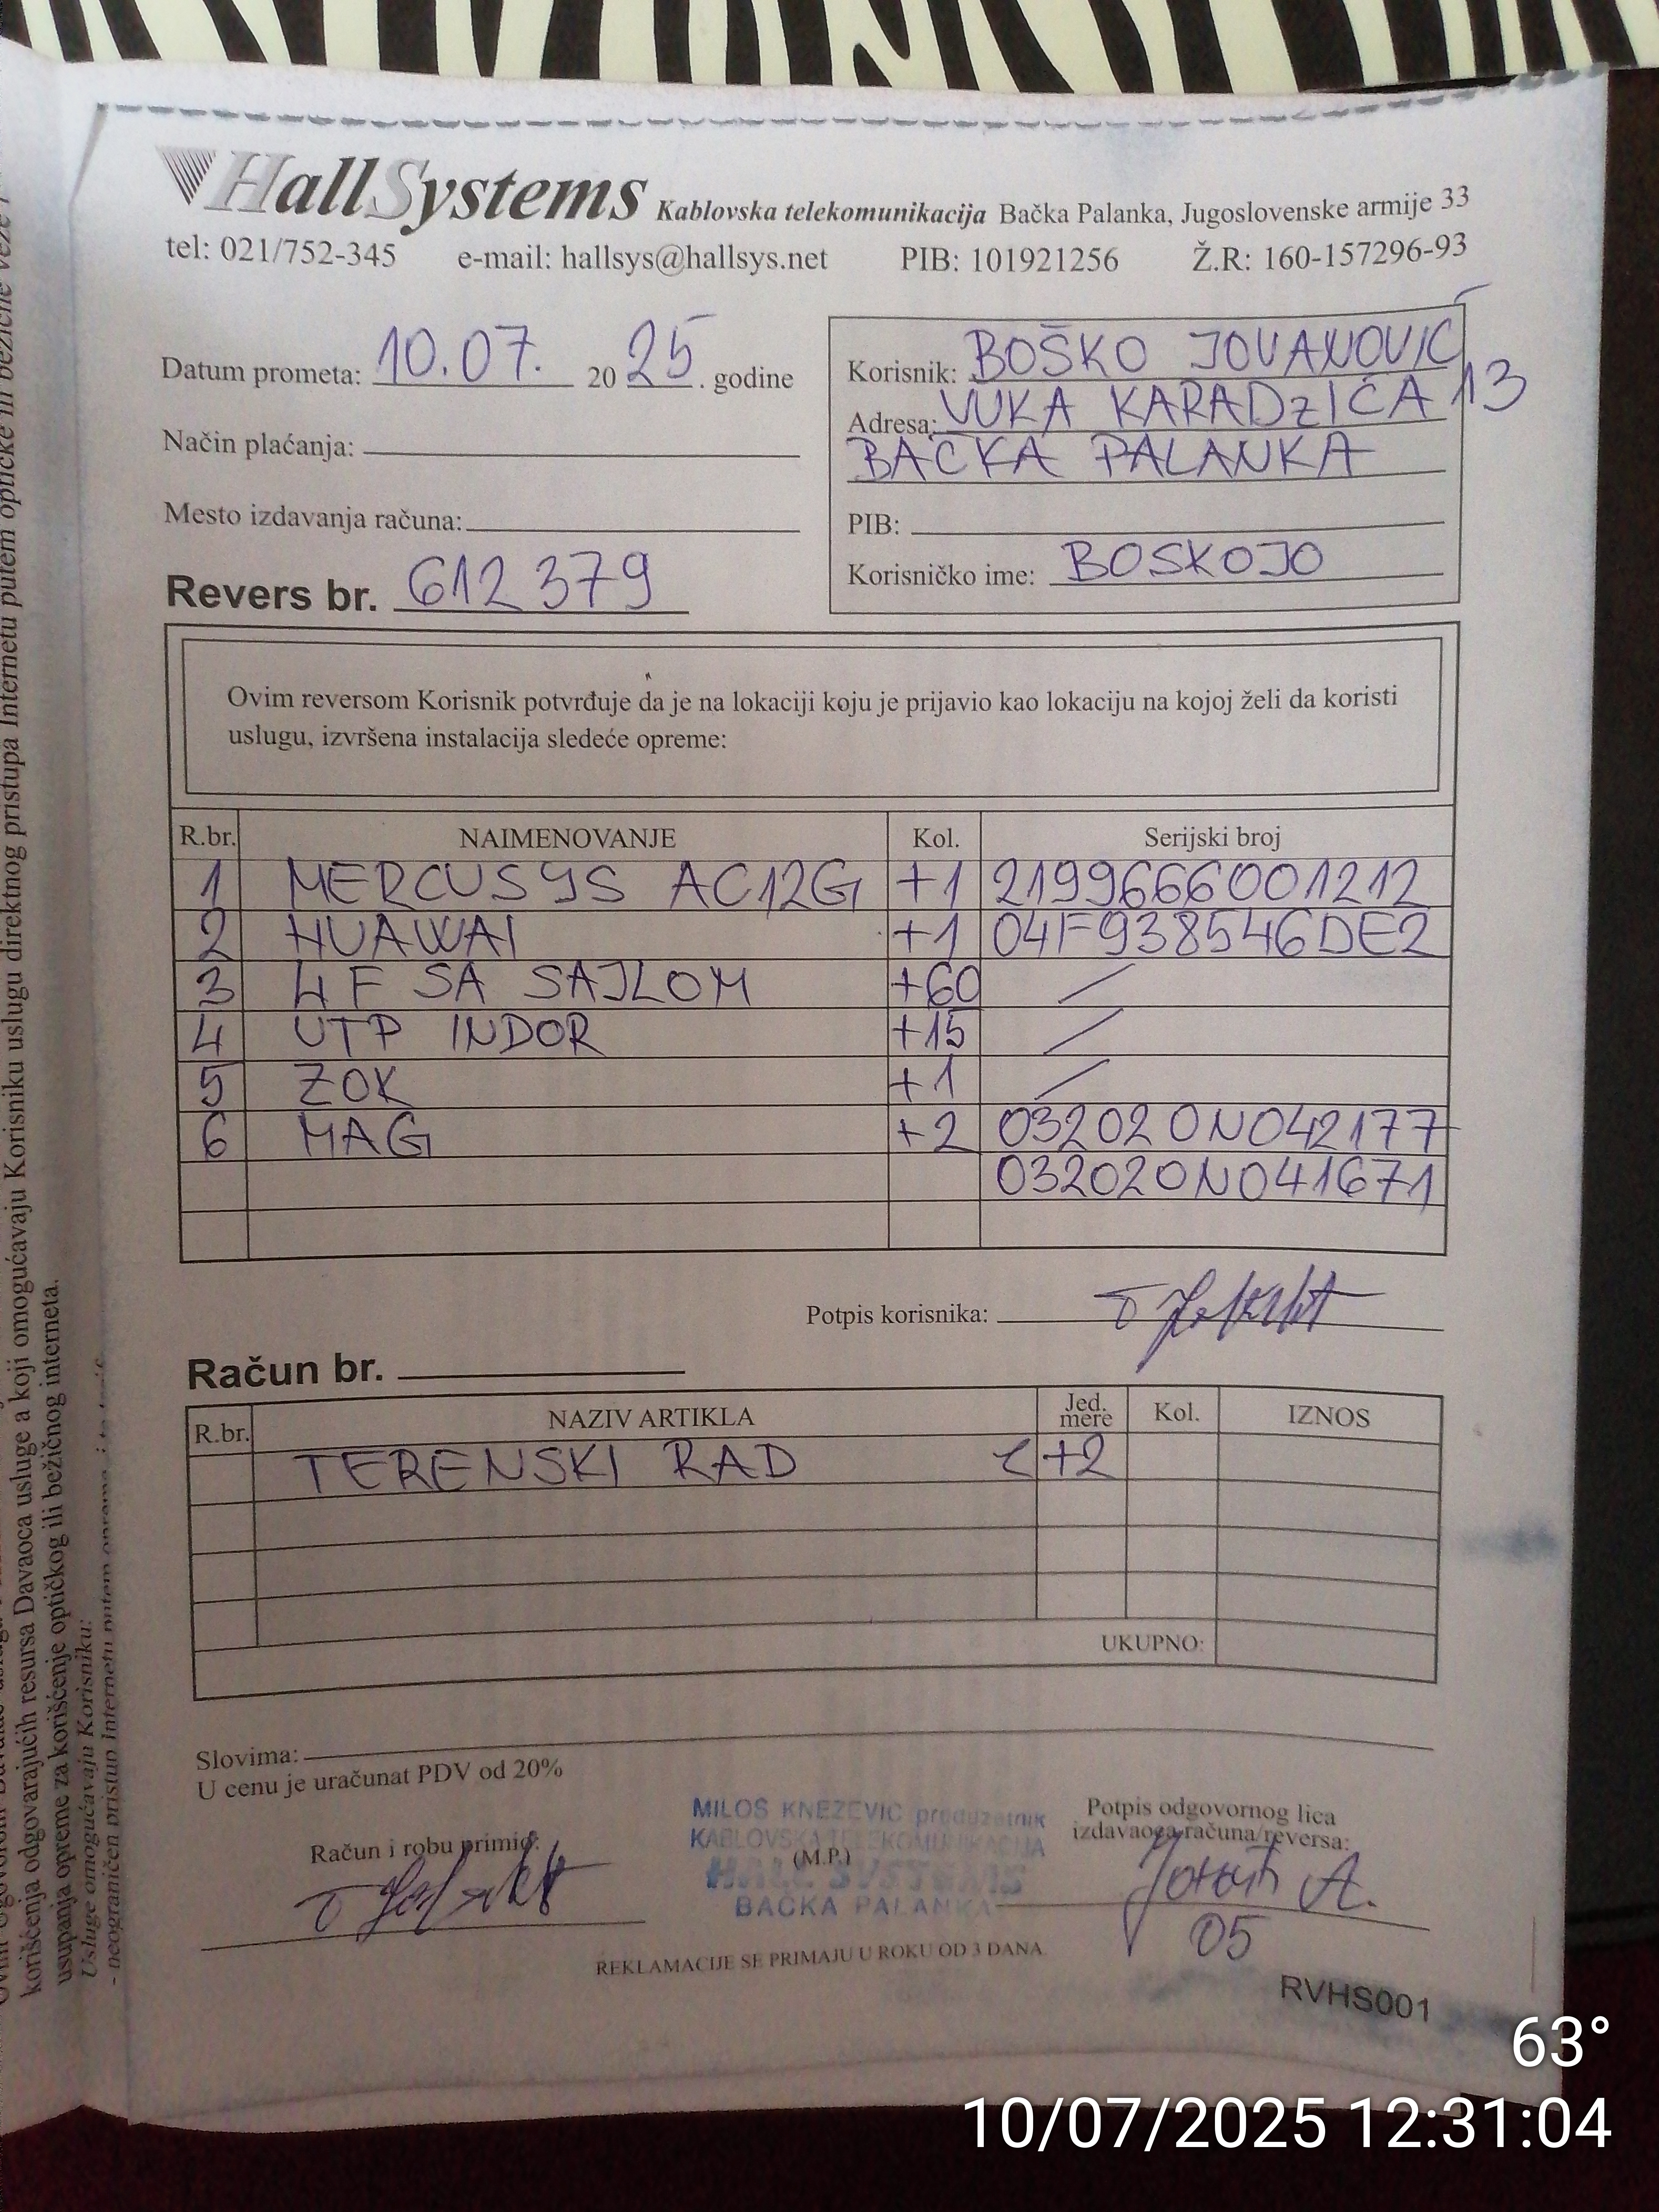 HallSystems Kablovska telekomunikacija Bačka Palanka, Jugoslovenske armije 33
tel: 021/752-345 e-mail: hallsys@hallsys.net PIB: 101921256 Ž.R: 160-157296-93
Datum prometa: 10.07. 20 25. godine
Način plaćanja:
Mesto izdavanja računa:
Revers br. 612379
Korisnik: BOŠKO JOVANOVIĆ
Adresa: VUKA KARADzIĆA 13
BAČKA PALANKA
PIB:
Korisničko ime: BOSKOJO
Ovim reversom Korisnik potvrđuje da je na lokaciji koju je prijavio kao lokaciju na kojoj želi da koristi
uslugu, izvršena instalacija sledeće opreme:
R.br. NAIMENOVANJE Kol. Serijski broj
1 MERCUSYS AC12G +1 2199666001212
2 HUAWAI +1 04F938546DE2
3 4F SA SAJLOM +60 /
4 UTP INDOR +15 /
5 ZOK +1 /
6 MAG +2 032020N042177
032020N041671
Potpis korisnika:
Račun br.
R.br. NAZIV ARTIKLA Jed. mere Kol. IZNOS
TERENSKI RAD +2
UKUPNO:
Slovima:
U cenu je uračunat PDV od 20%
Račun i robu primio:
MILOŠ KNEŽEVIĆ preduzetnik
KABLOVSKA TELEKOMUNIKACIJA
(M.P.)
HALL SYSTEMS
BAČKA PALANKA
Potpis odgovornog lica
izdavaoca računa/reversa:
05
REKLAMACIJE SE PRIMAJU U ROKU OD 3 DANA
RVHS001
korišćenja odgovarajućih resursa Davaoca usluge a koji omogućavaju Korisniku uslugu direktnog pristupa Internetu putem optičke ili bežične veze
ustupanja opreme za korišćenje optičkog ili bežičnog interneta.
Usluge omogućavaju Korisniku:
- neograničen pristup Internetu putem opreme
63°
10/07/2025 12:31:04